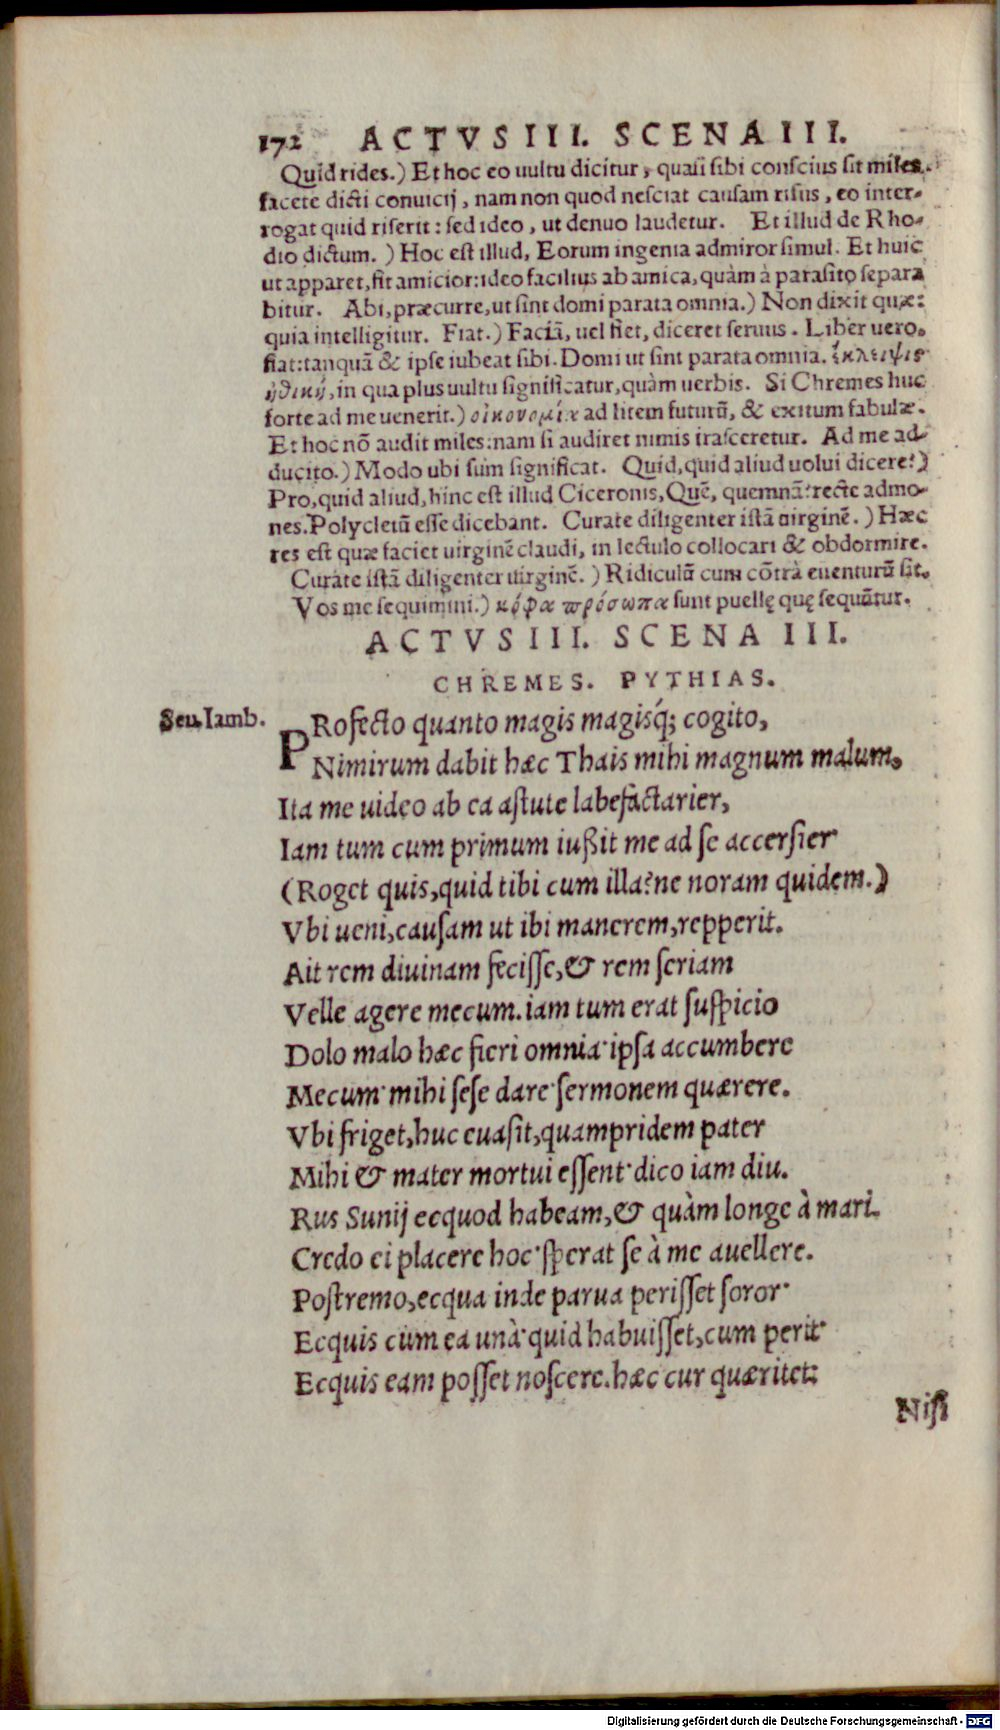 172 ACTVS III. SCENA III.
Quid rides.) Et hoc eo uultu dicitur, quasi sibi conscius sit miles
facete dicti conuicij, nam non quod nesciat causam risus, eo inter-
rogat quid riserit: sed ideo, ut denuo laudetur. Et illud de Rho-
dio dictum.) Hoc est illud, Eorum ingenia admiror simul. Et huic
ut apparet, fit amicior: ideo facilius ab amica, quàm à parasito separa
bitur. Abi, præcurre, ut sint domi parata omnia.) Non dixit quæ:
quia intelligitur. Fiat.) Faciā, uel fiet, diceret seruus. Liber uero,
fiat: tanquā & ipse iubeat sibi. Domi ut sint parata omnia. ἔκλειψις
ἠθική, in qua plus uultu significatur, quàm uerbis. Si Chremes huc
forte ad me uenerit.) οἰκονομία ad litem futurā, & exitum fabulæ.
Et hoc nō audit miles: nam si audiret nimis irasceretur. Ad me ad-
ducito.) Modo ubi sum significat. Quid, quid aliud uolui dicere?)
Pro, quid aliud, hinc est illud Ciceronis, Quē, quemnā? recte admo-
nes. Polycletū esse dicebant. Curate diligenter istā uirginē.) Hæc
res est quæ faciet uirginē claudi, in lectulo collocari & obdormire.
Curate istā diligenter uirginē.) Ridiculū cum cōtrà euenturū sit.
Vos me sequimini.) κωφὰ πρόσωπα sunt puellę quę sequūtur.
ACTVS III. SCENA III.
CHREMES. PYTHIAS.
Sen. Iamb.
PRofecto quanto magis magisq́; cogito,
Nimirum dabit hæc Thais mihi magnum malum,
Ita me uideo ab ea astute labefactarier,
Iam tum cum primum iußit me ad se accersier
(Roget quis, quid tibi cum illa? ne noram quidem.)
Vbi ueni, causam ut ibi manerem, repperit.
Ait rem diuinam fecisse, & rem seriam
Velle agere mecum. iam tum erat suspicio
Dolo malo hæc fieri omnia· ipsa accumbere
Mecum· mihi sese dare· sermonem quærere.
Vbi friget, huc euasit, quampridem pater
Mihi & mater mortui essent· dico iam diu.
Rus Sunij ecquod habeam, & quàm longe à mari.
Credo ei placere hoc· sperat se à me auellere.
Postremo, ecqua inde parua perisset soror·
Ecquis cum ea unà· quid habuisset, cum perit·
Ecquis eam posset noscere. hæc cur quæritet?
Nisi
Digitalisierung gefördert durch die Deutsche Forschungsgemeinschaft - DFG